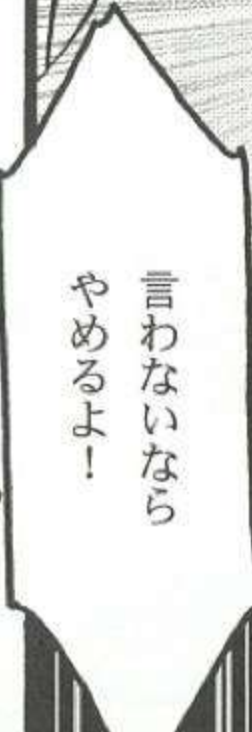 言わないなら
やめるよ！